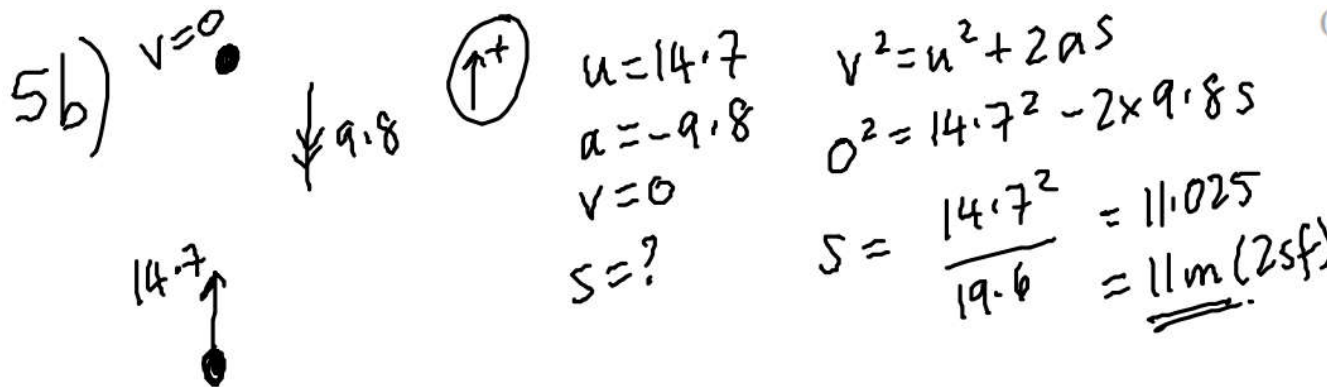 5b) v=0
↓ 9.8
↑+
14.7
u=14.7
a=-9.8
v=0
s=?
v²=u²+2as
0²=14.7²-2×9.8s
s = 14.7²/19.6 = 11.025
= 11m (2sf).